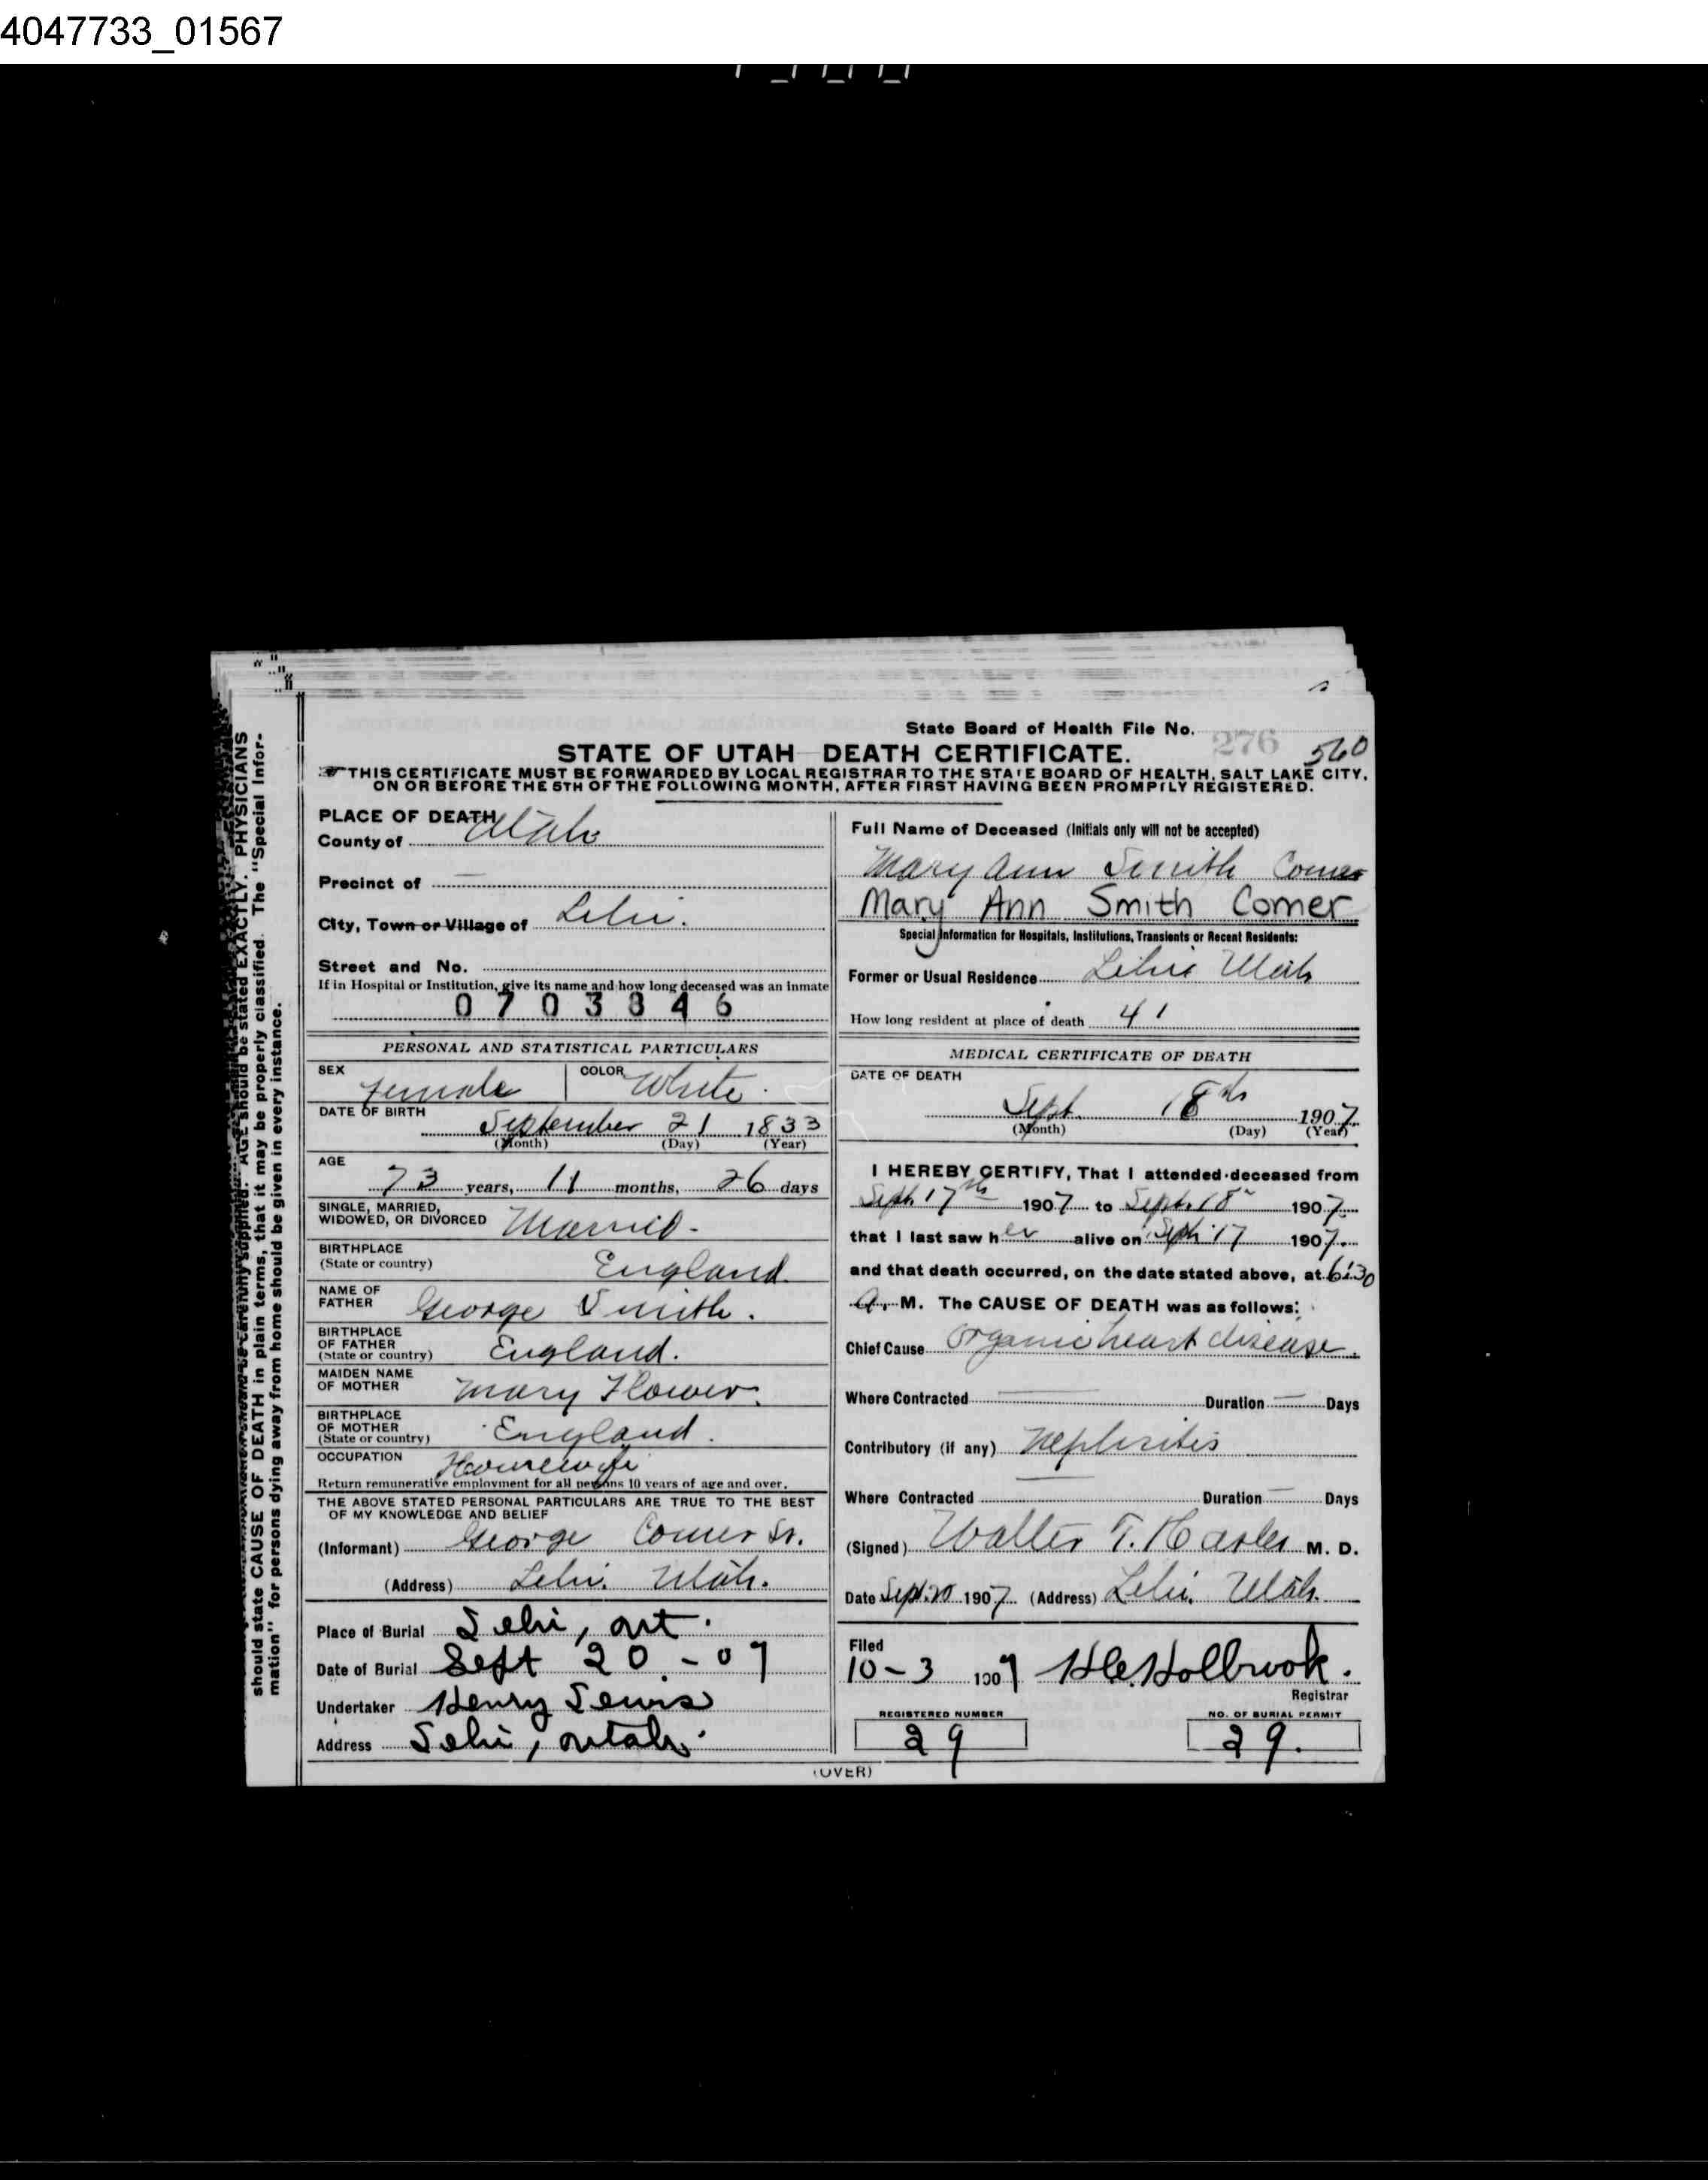 4047733_01567
should state CAUSE OF DEATH in plain terms, that it may be properly classified. The "Special Infor-
mation" for persons dying away from home should be given in every instance.
AGE should be stated EXACTLY. PHYSICIANS
State Board of Health File No. 276 560
STATE OF UTAH DEATH CERTIFICATE.
THIS CERTIFICATE MUST BE FORWARDED BY LOCAL REGISTRAR TO THE STATE BOARD OF HEALTH, SALT LAKE CITY,
ON OR BEFORE THE 5TH OF THE FOLLOWING MONTH, AFTER FIRST HAVING BEEN PROMPTLY REGISTERED.
PLACE OF DEATH
County of Utah
Precinct of —
City, Town or Village of Lehi.
Street and No.
If in Hospital or Institution, give its name and how long deceased was an inmate
0703846
PERSONAL AND STATISTICAL PARTICULARS
SEX female COLOR White.
DATE OF BIRTH
September 21 1833
(Month) (Day) (Year)
AGE
73 years, 11 months, 26 days
SINGLE, MARRIED,
WIDOWED, OR DIVORCED Married.
BIRTHPLACE
(State or country) England.
NAME OF
FATHER George Smith.
BIRTHPLACE
OF FATHER
(State or country) England.
MAIDEN NAME
OF MOTHER Mary Flower.
BIRTHPLACE
OF MOTHER
(State or country) England.
OCCUPATION Housewife
Return remunerative employment for all persons 10 years of age and over.
THE ABOVE STATED PERSONAL PARTICULARS ARE TRUE TO THE BEST
OF MY KNOWLEDGE AND BELIEF
(Informant) George Comer Sr.
(Address) Lehi. Utah.
Place of Burial Lehi, ut.
Date of Burial Sept 20 - 07
Undertaker Henry Lewis
Address Lehi, utah.
Full Name of Deceased (Initials only will not be accepted)
Mary Ann Smith Comer
Mary Ann Smith Comer
Special Information for Hospitals, Institutions, Transients or Recent Residents:
Former or Usual Residence Lehi Utah
How long resident at place of death 41
MEDICAL CERTIFICATE OF DEATH
DATE OF DEATH
Sept. 18th 1907
(Month) (Day) (Year)
I HEREBY CERTIFY, That I attended deceased from
Sept. 17th 1907 to Sept. 18" 1907
that I last saw her alive on Sept. 17 1907
and that death occurred, on the date stated above, at 6:30
A. M. The CAUSE OF DEATH was as follows:
Chief Cause Organic heart disease.
Where Contracted — Duration — Days
Contributory (if any) Nephritis
Where Contracted Duration Days
(Signed) Walter T. Hasler M. D.
Date Sept. 20 1907 (Address) Lehi, Utah.
Filed
10-3 1907 H.C. Holbrook.
Registrar
REGISTERED NUMBER
29
NO. OF BURIAL PERMIT
29.
(OVER)